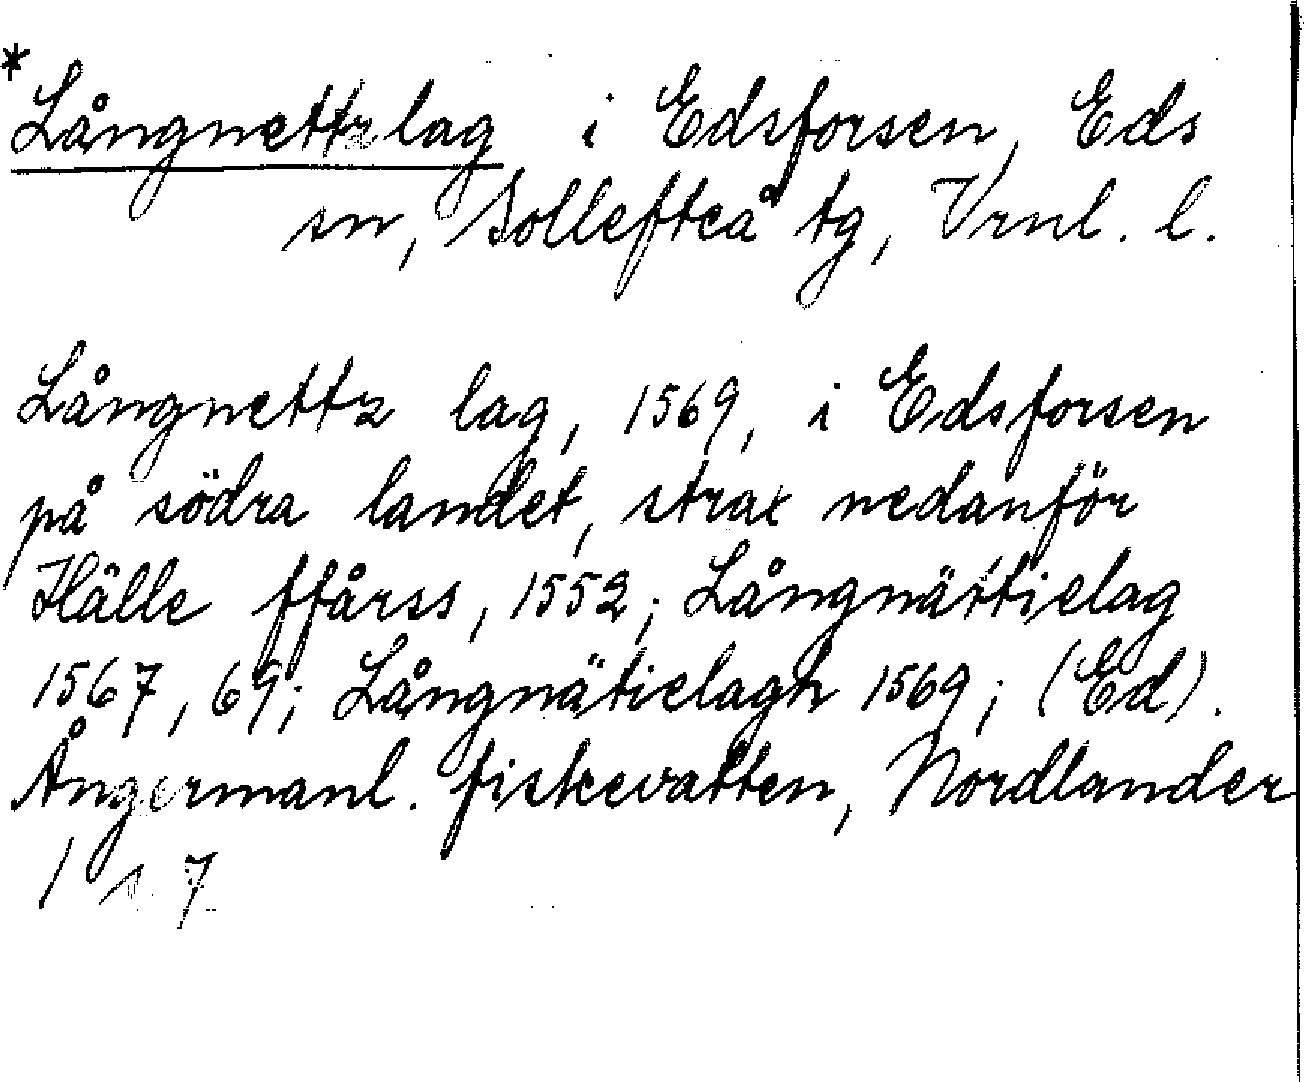 *Långnettzlag i Edsforsen, Eds
sn, Sollefteå tg, Vrnl. l.
Långnettz lag, 1569, i Edsforsen
på södra landet, strax nedanför
Hälle ffårss, 1552; Långnättielag
1567, 69; Långnätielagh 1569; (Ed).
Ångermanl. fiskevatten, Nordlander
1 s. 7